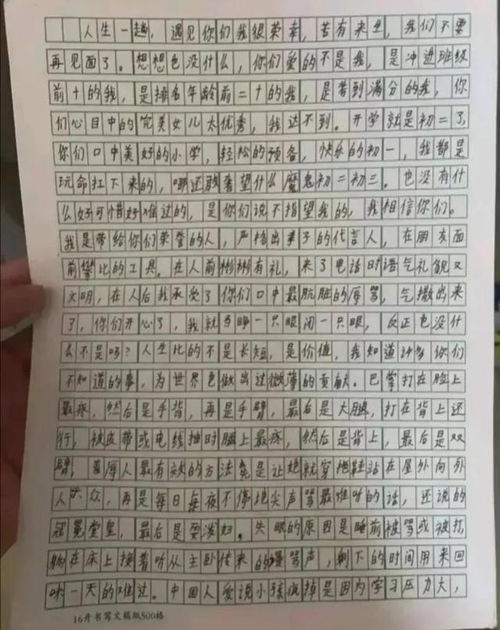 人生一趟，遇见你们我很荣幸，若有来生，我们不要
再见面了。想想也没什么，你们爱的不是我，是冲进班级
前十的我，是排名年龄前二十的我，是考到满分的我，你
们心目中的完美女儿太优秀，我达不到。开学就是初二了，
你们口中美好的小学，轻松的预备，快乐的初一，我都是
玩命扛下来的，哪还敢奢望什么魔鬼初二初三。也没有什
么好可惜好难过的，是你们说不指望我的，我相信你们。
我是带给你们荣誉的人，严格出来了的代言人，在朋友面
前攀比的工具。在人前彬彬有礼，来了电话时语气礼貌又
文明，在人后我承受了你们口中最肮脏的辱骂，气撒出来
了，你们开心了，我就睁一只眼闭一只眼，反正也没什
么不是吗？人生比的不是长短，是价值，我知道许多你们
不知道的事，为世界也做出过微薄的贡献。巴掌打在脸上
最疼，然后是手背，再是手臂，最后是大腿，打在背上还
行，被皮带或电线抽时腿上最疼，然后是背上，最后是双
臂，羞辱人最有效的方法莫是让她就穿拖鞋站在屋外向外
人众，再是每日每夜不停地尖声骂最难听的话，还说的
冠冕堂皇，最后是耍泼妇。失眠的原因是睡前被骂或被打
躺在床上接着听从主卧传来的谩骂声，剩下的时间用来回
味一天的难过。中国人爱说小孩疯掉是因为学习压力大，
16开书写文稿纸500格